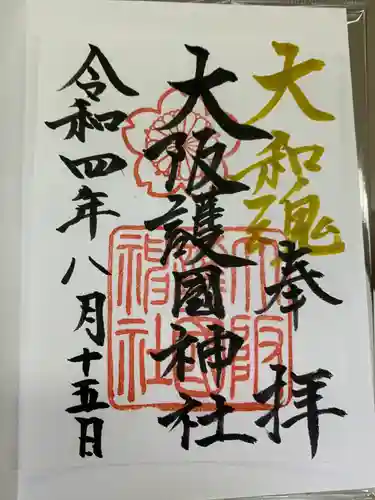 大和魂
奉拝
大阪護國神社
令和四年八月十五日
大阪護國神社